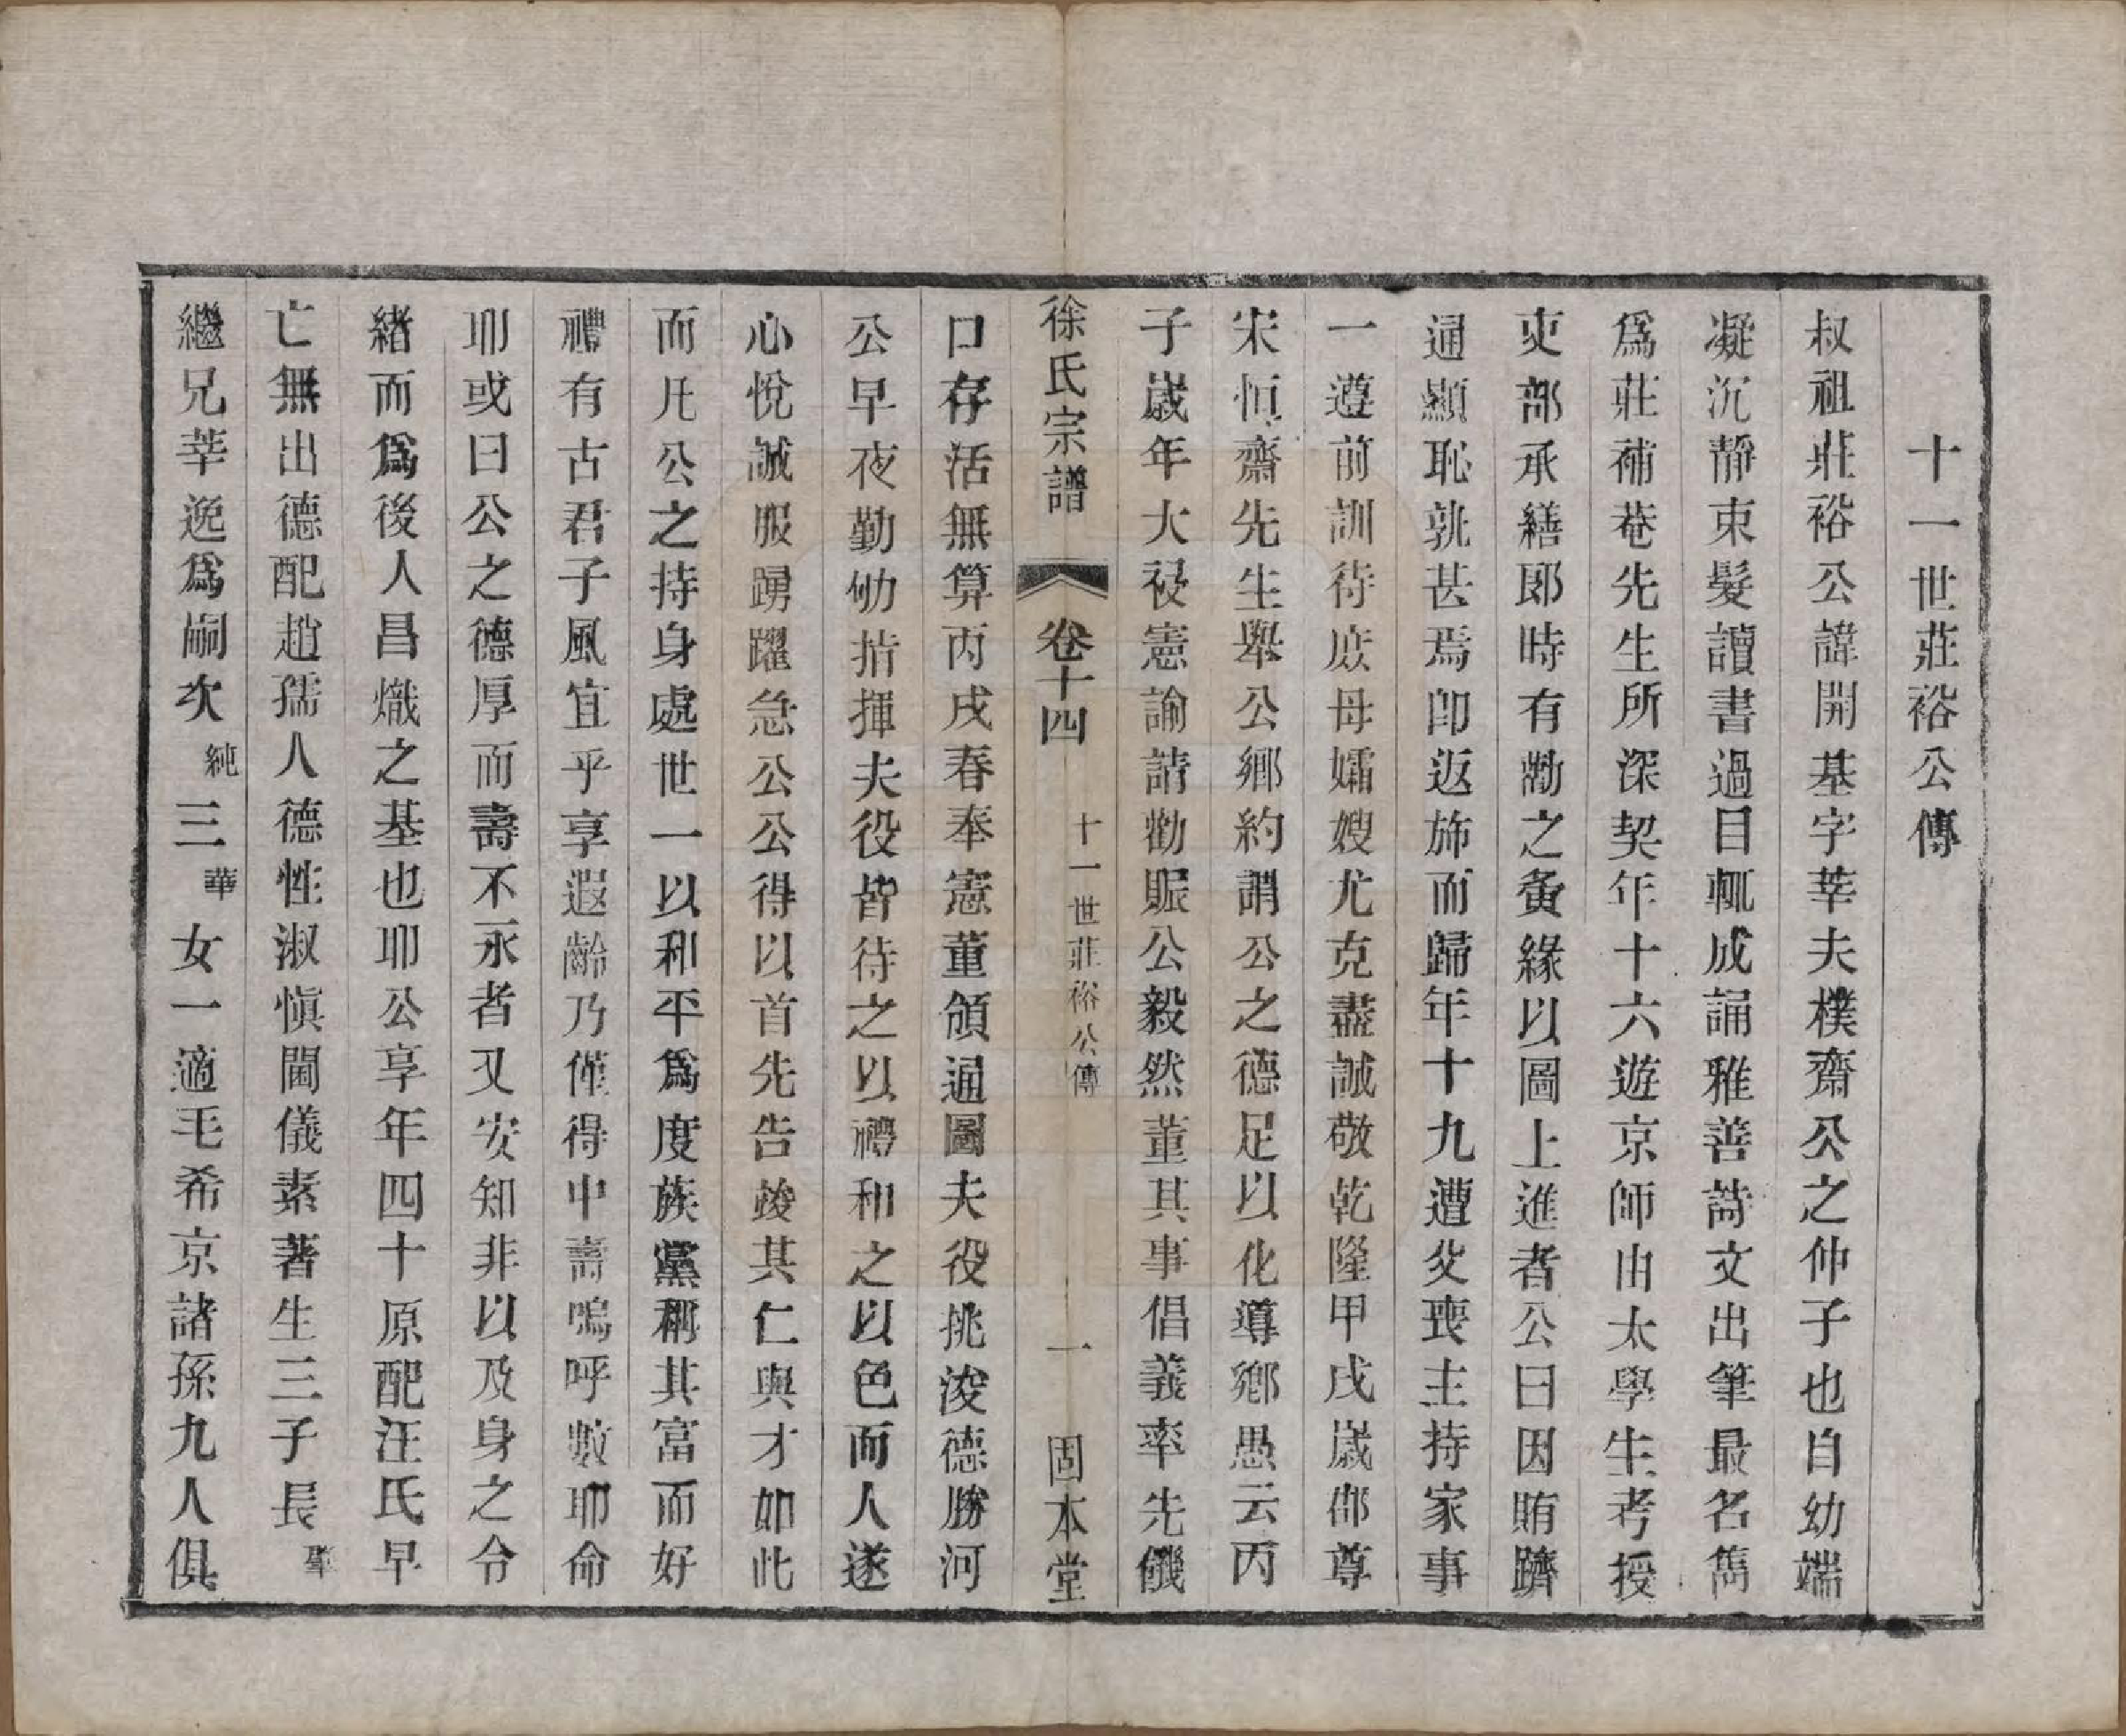 十一世莊裕公傳
叔祖莊裕公諱開基字莘夫樸齋公之仲子也自幼端
凝沉靜束髮讀書過目輒成誦雅善詩文出筆最名雋
爲莊補菴先生所深契年十六遊京師由太學生考授
吏部承繕郎時有勸之夤緣以圖上進者公曰因賄躋
通顯恥孰甚焉卽返斾而歸年十九遭父喪主持家事
一遵前訓待庶母孀嫂尤克盡誠敬乾隆甲戌歲邵尊
宋恒齋先生舉公鄉約謂公之德足以化導鄉愚云丙
子歲年大祲憲諭請勸賑公毅然董其事倡義率先饑
徐氏宗譜 卷十四 十一世莊裕公傳 一 固本堂
口存活無算丙戌春奉憲董頒通圖夫役挑浚德勝河
公早夜勤劬指揮夫役皆待之以禮和之以色而人遂
心悅誠服踴躍急公公得以首先告竣其仁與才如此
而凡公之持身處世一以和平爲度族黨稱其富而好
禮有古君子風宜乎享遐齡乃僅得中壽嗚呼數耶命
耶或曰公之德厚而壽不永者又安知非以及身之令
緒而爲後人昌熾之基也耶公享年四十原配汪氏早
亡無出德配趙孺人德性淑愼閫儀素著生三子長
繼兄莘逸爲嗣次純三華女一適毛希京諸孫九人俱